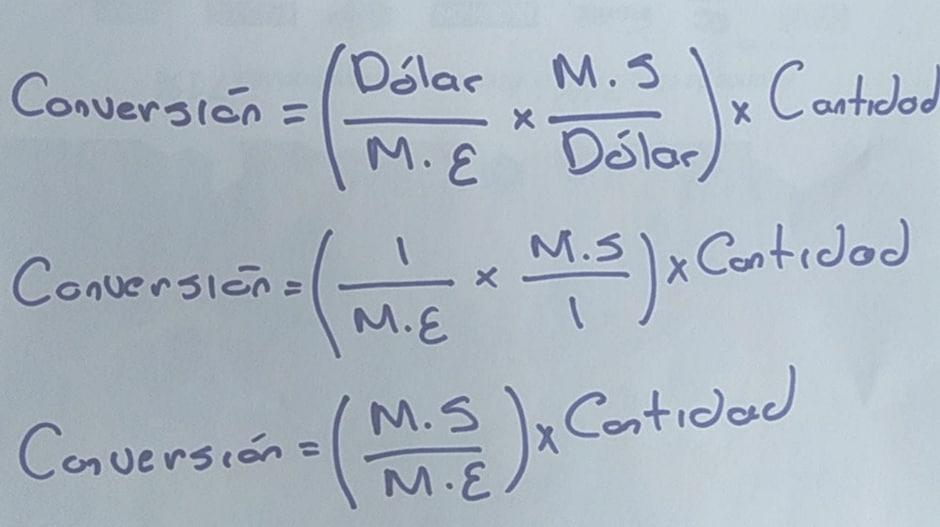 Conversión = (Dólar / M.E × M.S / Dólar) × Cantidad
Conversión = (1 / M.E × M.S / 1) × Cantidad
Conversión = (M.S / M.E) × Cantidad